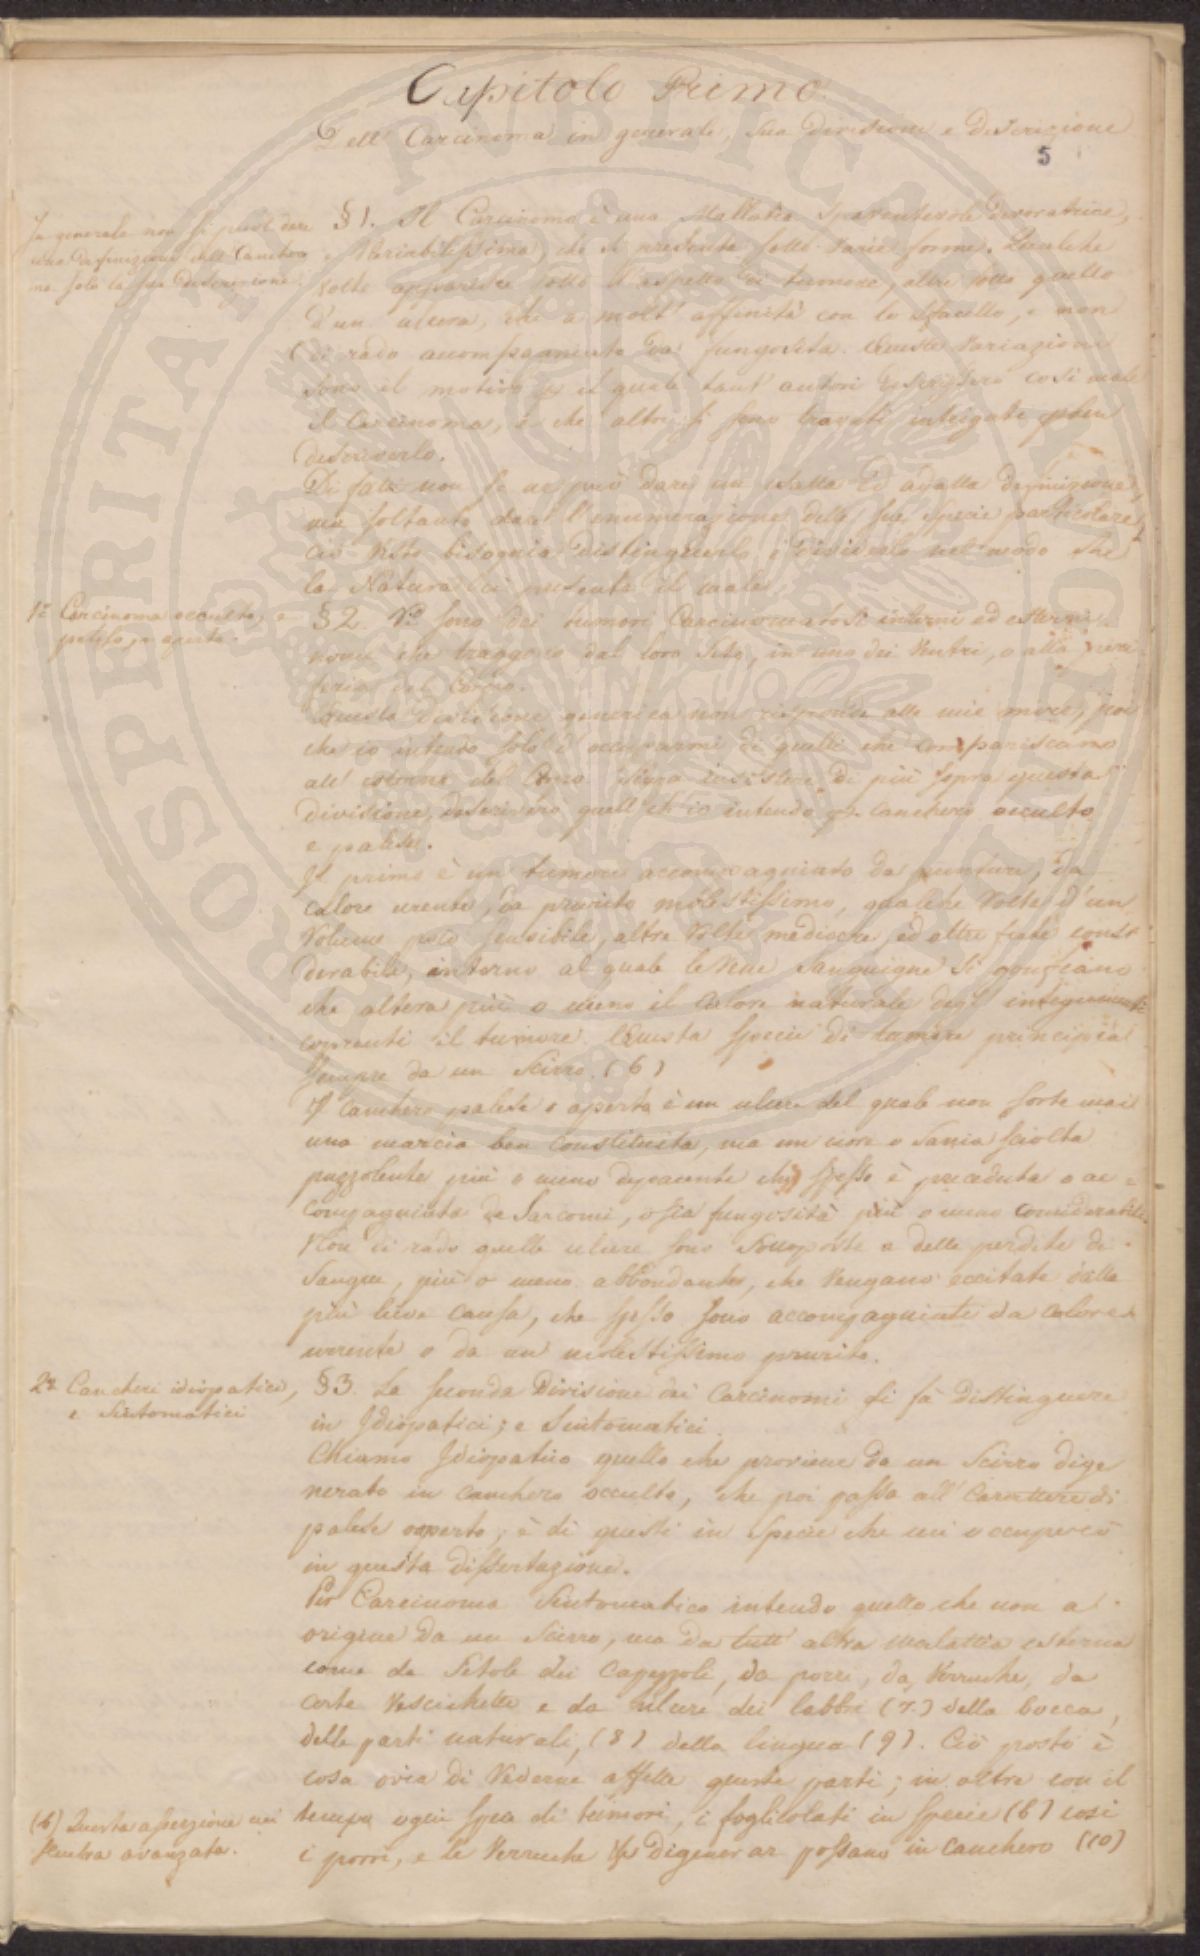 Capitolo Primo
Dell' Carcinoma in generale, sua divisione e descrizione
5
In generale non si puol dare
una definizione dell Canchero
ma solo la sua descrizione.
§ 1. Il Carcinoma è una Mallatia spaventevole devoratrice,
e Variabilissima, che si presenta sotto varie forme. Qualche
volte apparisce sotto l'aspetto di tumore, altre sotto quello
d'un ulcera, che a molt' affinità con lo sfacello, e non
di rado accompagniata da fungosita. Queste Variazioni
sono il motivo p il quale tant' autori descrissero così male
il Carcinoma, e che altri si sono trovati intrigati p ben
descriverlo.
Di fati non se ne può dare un esatta ed adatta definizione,
ma soltanto dare l'enumerazione delle sue specie particolare,
ciò visto bisognia distinguerlo, e dividerlo nel modo che
la Natura ci presenta il male.
1ª Carcinoma occulto, e
palese, o aperto.
§ 2. Vi sono dei tumori Carcinomatosi interni ed esterni
nome che traggono dal loro Sito, in uno dei Ventri, o alla peri
feria del Corpo.
Questa divisione generica non risponde alle mie mire, poi
che io intendo solo d'occuparmi di quelli che compariscano
all' esterno del Corpo. Senza insistere di più sopra questa
divisione, descriverò quell' ch'io intendo p canchero occulto
e palese.
Il primo è un tumore accompagniato da punture, da
calore urente, da prurito molestissimo, qualche volte d'un
Volume poco sensibile, altre volte mediocre, ed altre fiate consi
derabile, intorno al quale le Vene sanguigne si gonfiano
che altera più o meno il Colore naturale degl' integumenti
coprenti il tumore. Questa specie di tumore principia
sempre da un Scirro. (6)
Il canchero palese o aperto è un ulcere del quale non sorte mai
una marcia ben constituita, ma un icore o Sania sciolta
puzzolente più o meno depascente che spesso è preceduta o ac=
compagniata da Sarcomi, o sia fungosità più o meno considerabili.
Non di rado quelle ulcere sono sottoposte a delle perdite di
Sangue, più o meno abbondante, che vengano eccitate dalla
più lieve causa, che spesso sono accompagniate da calore
urrente o da un molestissimo prurito.
2ª Cancheri idiopatici,
e Sintomatici
§ 3. La seconda Divisione dei Carcinomi si fà distinguere
in Idiopatici; e Sintomatici.
Chiamo Idiopatico quello che proviene da un Scirro dige
nerato in canchero occulto, che poi passa all' Carattere di
palese o aperto; è di questi in specie che mi occuperò
in questa dissertazione.
Per Carcinoma Sintomatico intendo quello che non a
origine da un Scirro, ma da tutt' altra malattia esterna
come da Setole dei Capezzoli, da porri, da Verruche, da
certe vescichette e da ulcere dei labbri (7.) della bocca,
delle parti naturali, (8) della lingua (9). Ciò posto è
cosa ovia di Vederne affette queste parti; in oltre con il
tempo ogni spea di tumori, i foglicolati in specie (6) così
i porri, e le Verruche digenerar possano in Canchero (10)
(6) Questa asserzione mi
sembra avanzata.